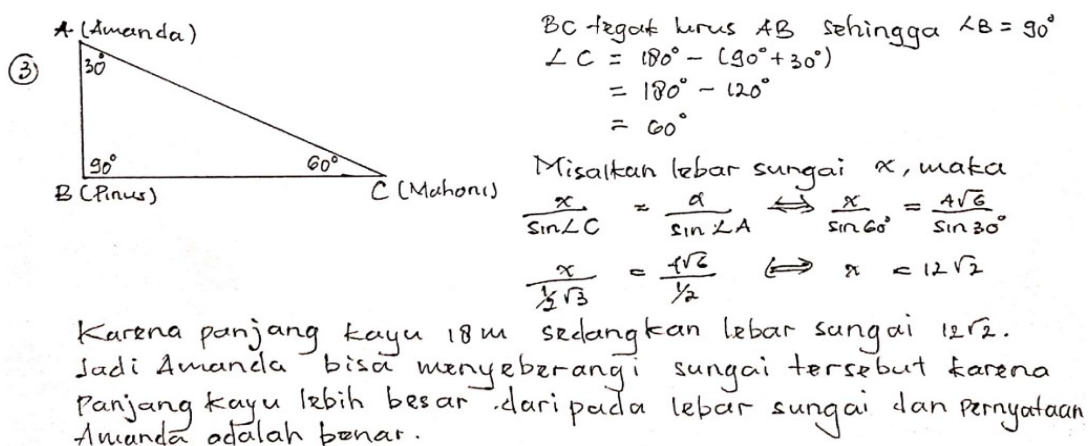 A (Amanda)
③
30°
90°
60°
B (Pinus)
C (Mahoni)
BC tegak lurus AB sehingga ∠B = 90°
∠C = 180° - (90° + 30°)
= 180° - 120°
= 60°
Misalkan lebar sungai x, maka
x/sin∠C = a/sin∠A ⟺ x/sin 60° = 4√6/sin 30°
x/½√3 = 4√6/½ ⟺ x = 12√2
Karena panjang kayu 18 m sedangkan lebar sungai 12√2.
Jadi Amanda bisa menyeberangi sungai tersebut karena
panjang kayu lebih besar daripada lebar sungai dan pernyataan
Amanda adalah benar.